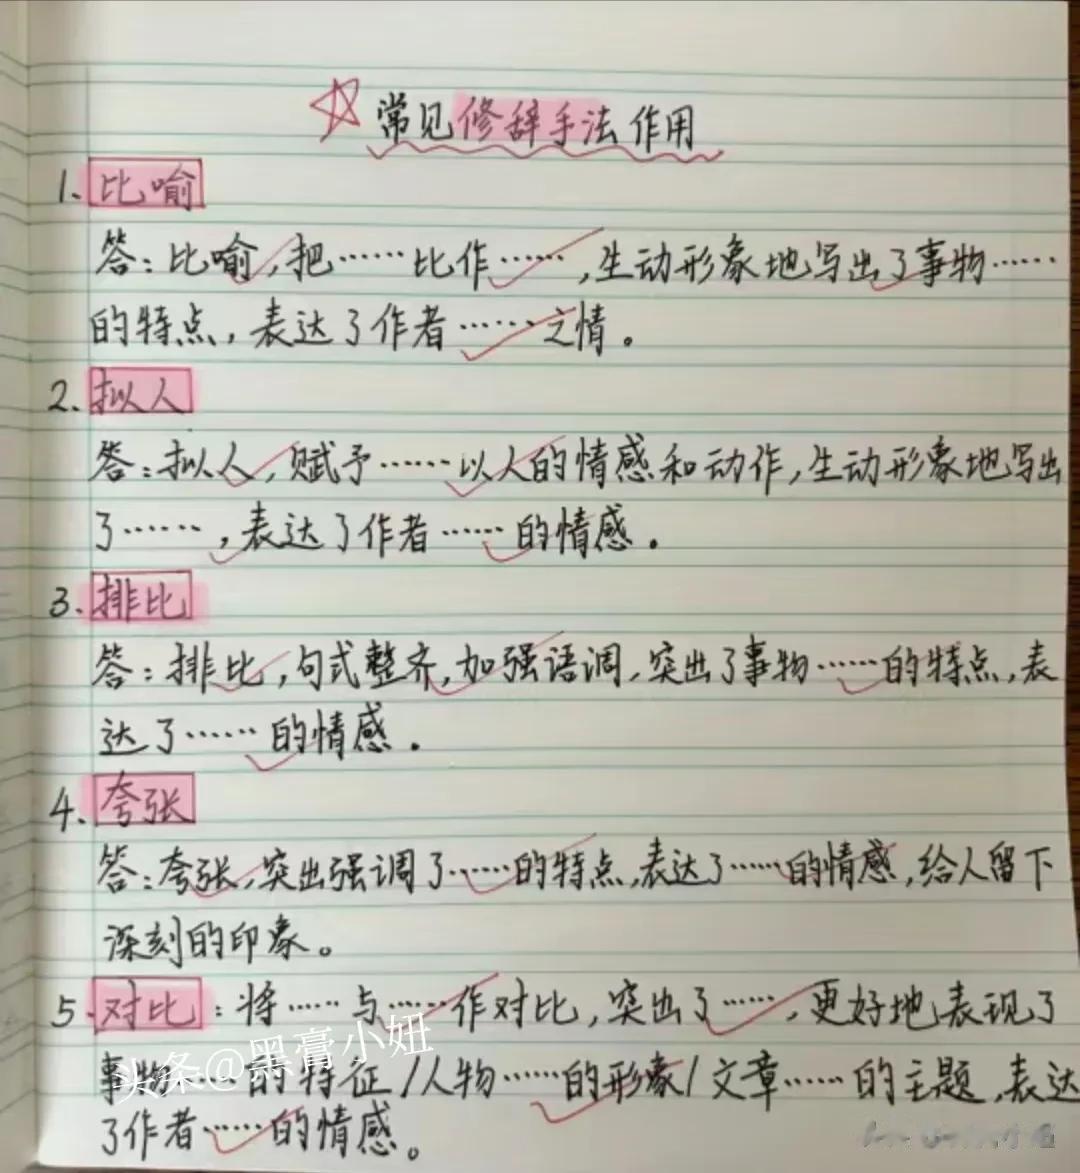 常见修辞手法作用
1、比喻
答：比喻，把……比作……，生动形象地写出了事物……
的特点，表达了作者……之情。
2、拟人
答：拟人，赋予……以人的情感和动作，生动形象地写出
了……，表达了作者……的情感。
3、排比
答：排比，句式整齐，加强语调，突出了事物……的特点，表
达了……的情感。
4、夸张
答：夸张，突出强调了……的特点，表达了……的情感，给人留下
深刻的印象。
5、对比：将……与……作对比，突出了……，更好地表现了
头条@黑膏小妞
事物……的特征/人物……的形象/文章……的主题，表达
了作者……的情感。